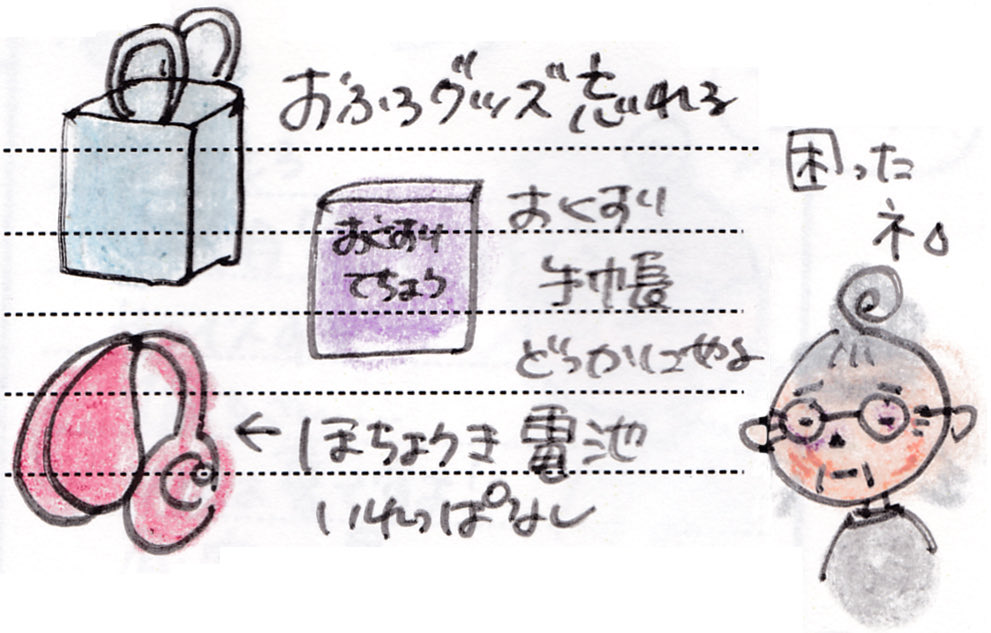 おふろグッズ忘れる
おくすり
てちょう
おくすり
手帳
どっかにやる
ほちょうき電池
いれっぱなし
困った
ネ。